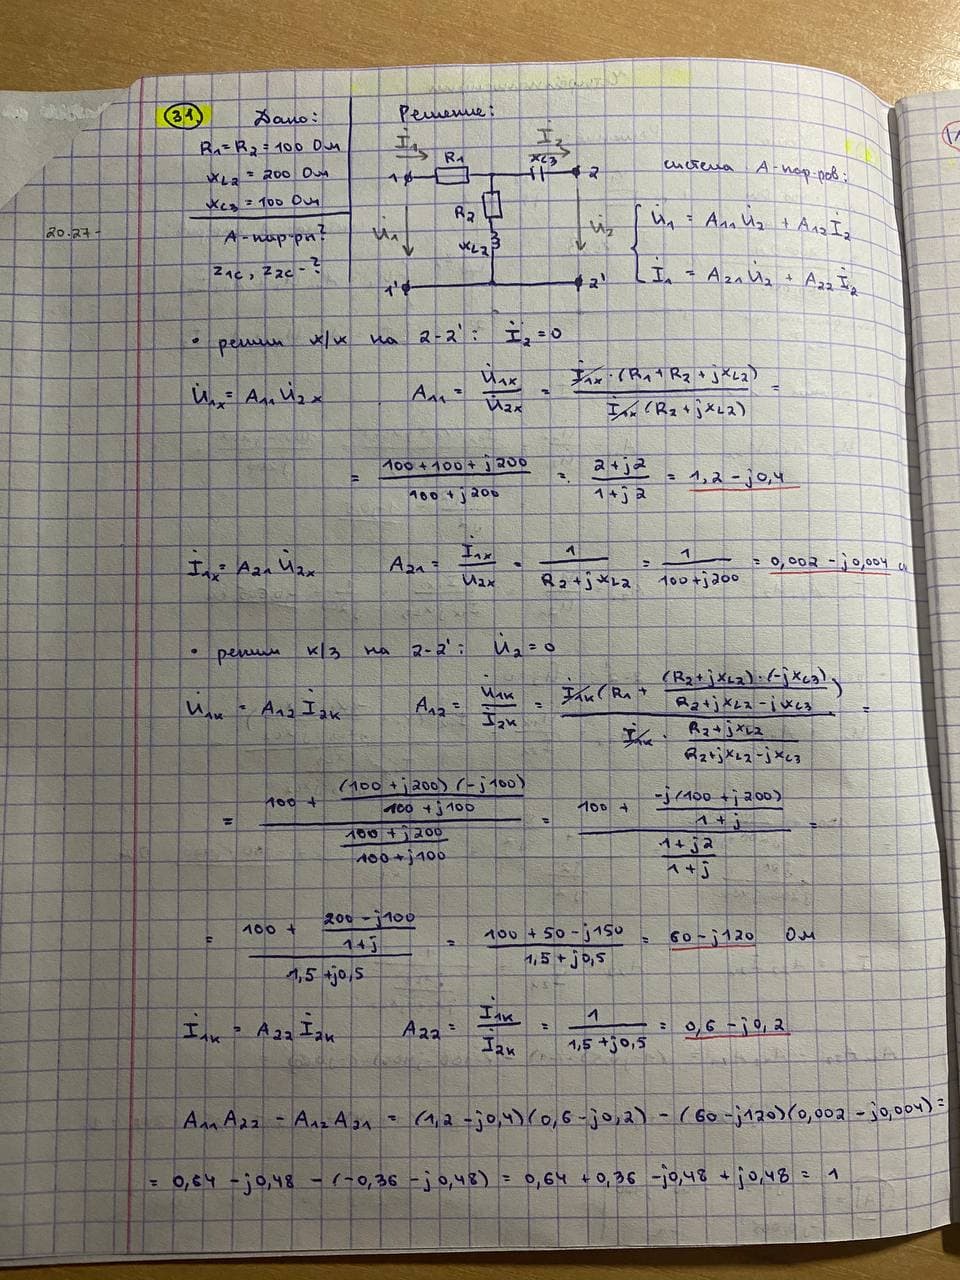 31. Дано: Решение:
R1 = R2 = 100 Ом
xL2 = 200 Ом
xC3 = 100 Ом
А-пар-ры?
z1c, z2c - ?
20.27-
İ1 İ2
R1 xC3
1 2
R2
U̇1 xL2 U̇2
1' 2'
система А-пар-ров:
U̇1 = A11 U̇2 + A12 İ2
İ1 = A21 U̇2 + A22 İ2
• режим х/х на 2-2': İ2 = 0
U̇1x = A11 U̇2x A11 = U̇1x / U̇2x = İ1x · (R1 + R2 + jxL2) / İ1x (R2 + jxL2) =
= (100 + 100 + j200) / (100 + j200) = (2 + j2) / (1 + j2) = 1,2 - j0,4
İ1x = A21 U̇2x A21 = İ1x / U̇2x = 1 / (R2 + jxL2) = 1 / (100 + j200) = 0,002 - j0,004
• режим к/з на 2-2': U̇2 = 0
U̇1к = A12 İ2к A12 = U̇1к / İ2к = İ1к (R1 + (R2 + jxL2) · (-jxC3) / (R2 + jxL2 - jxC3)) / (İ1к · (R2 + jxL2) / (R2 + jxL2 - jxC3)) =
= (100 + (100 + j200)(-j100) / (100 + j100)) / ((100 + j200) / (100 + j100)) = (100 + -j(100 + j200) / (1 + j)) / ((1 + j2) / (1 + j)) =
= (100 + (200 - j100) / (1 + j)) / (1,5 + j0,5) = (100 + 50 - j150) / (1,5 + j0,5) = 60 - j120 Ом
İ1к = A22 İ2к A22 = İ1к / İ2к = 1 / (1,5 + j0,5) = 0,6 - j0,2
A11 A22 - A12 A21 = (1,2 - j0,4)(0,6 - j0,2) - (60 - j120)(0,002 - j0,004) =
= 0,64 - j0,48 - (-0,36 - j0,48) = 0,64 + 0,36 - j0,48 + j0,48 = 1